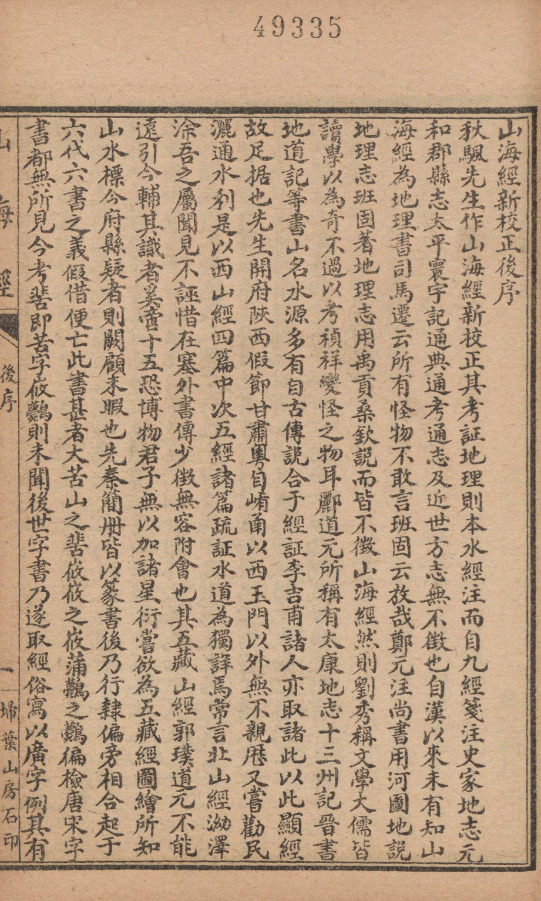 49335
山海經新校正後序
秋颿先生作山海經新校正其考証地理則本水經注而自九經箋注史家地志元
和郡縣志太平寰宇記通典通考通志及近世方志無不徵也自漢以來未有知山
海經為地理書司馬遷云所有怪物不敢言班固云放哉鄭元注尚書用河圖地說
地理志班固著地理志用禹貢桑欽說而皆不徵山海經然則劉秀稱文學大儒皆
讀學以為奇不過以考禎祥變怪之物耳酈道元所稱有太康地志十三州記晉書
地道記等書山名水源多有自古傳説合于經証李吉甫諸人亦取諸此以此顯經
故足据也先生開府陝西假節甘肅粵自崤函以西玉門以外無不親歷又嘗勸民
灑通水利是以西山經四篇中次五經諸篇疏証水道為獨詳焉常言北山經泑澤
涂吾之屬聞見不誣惜在塞外書傳少徵無容附會也其五藏山經郭璞道元不能
遠引今輔其識者奚啻十五恐博物君子無以加諸星衍嘗欲為五藏經圖繪所知
山水標今府縣疑者則闕顧未暇也先秦簡册皆以篆書後乃行隸偏旁相合起于
六代六書之義假借便亡此書甚者大苦山之𦽐莜莜之莜蒲鸏之鸏偏檢唐宋字
書都無所見今考𦽐即苦字莜鸏則未聞後世字書乃遂取經俗寫以廣字例其有
山海經
後序
一
埽葉山房石印